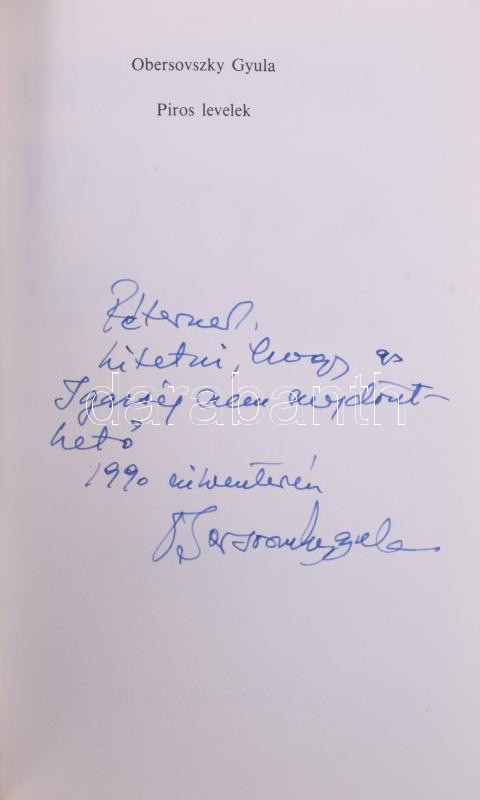 Obersovszky Gyula
Piros levelek
Péternek,
hitetni, hogy az
Igazság nem megdönt-
hető
1990 szilveszterén
Obersovszky Gyula
darabanth